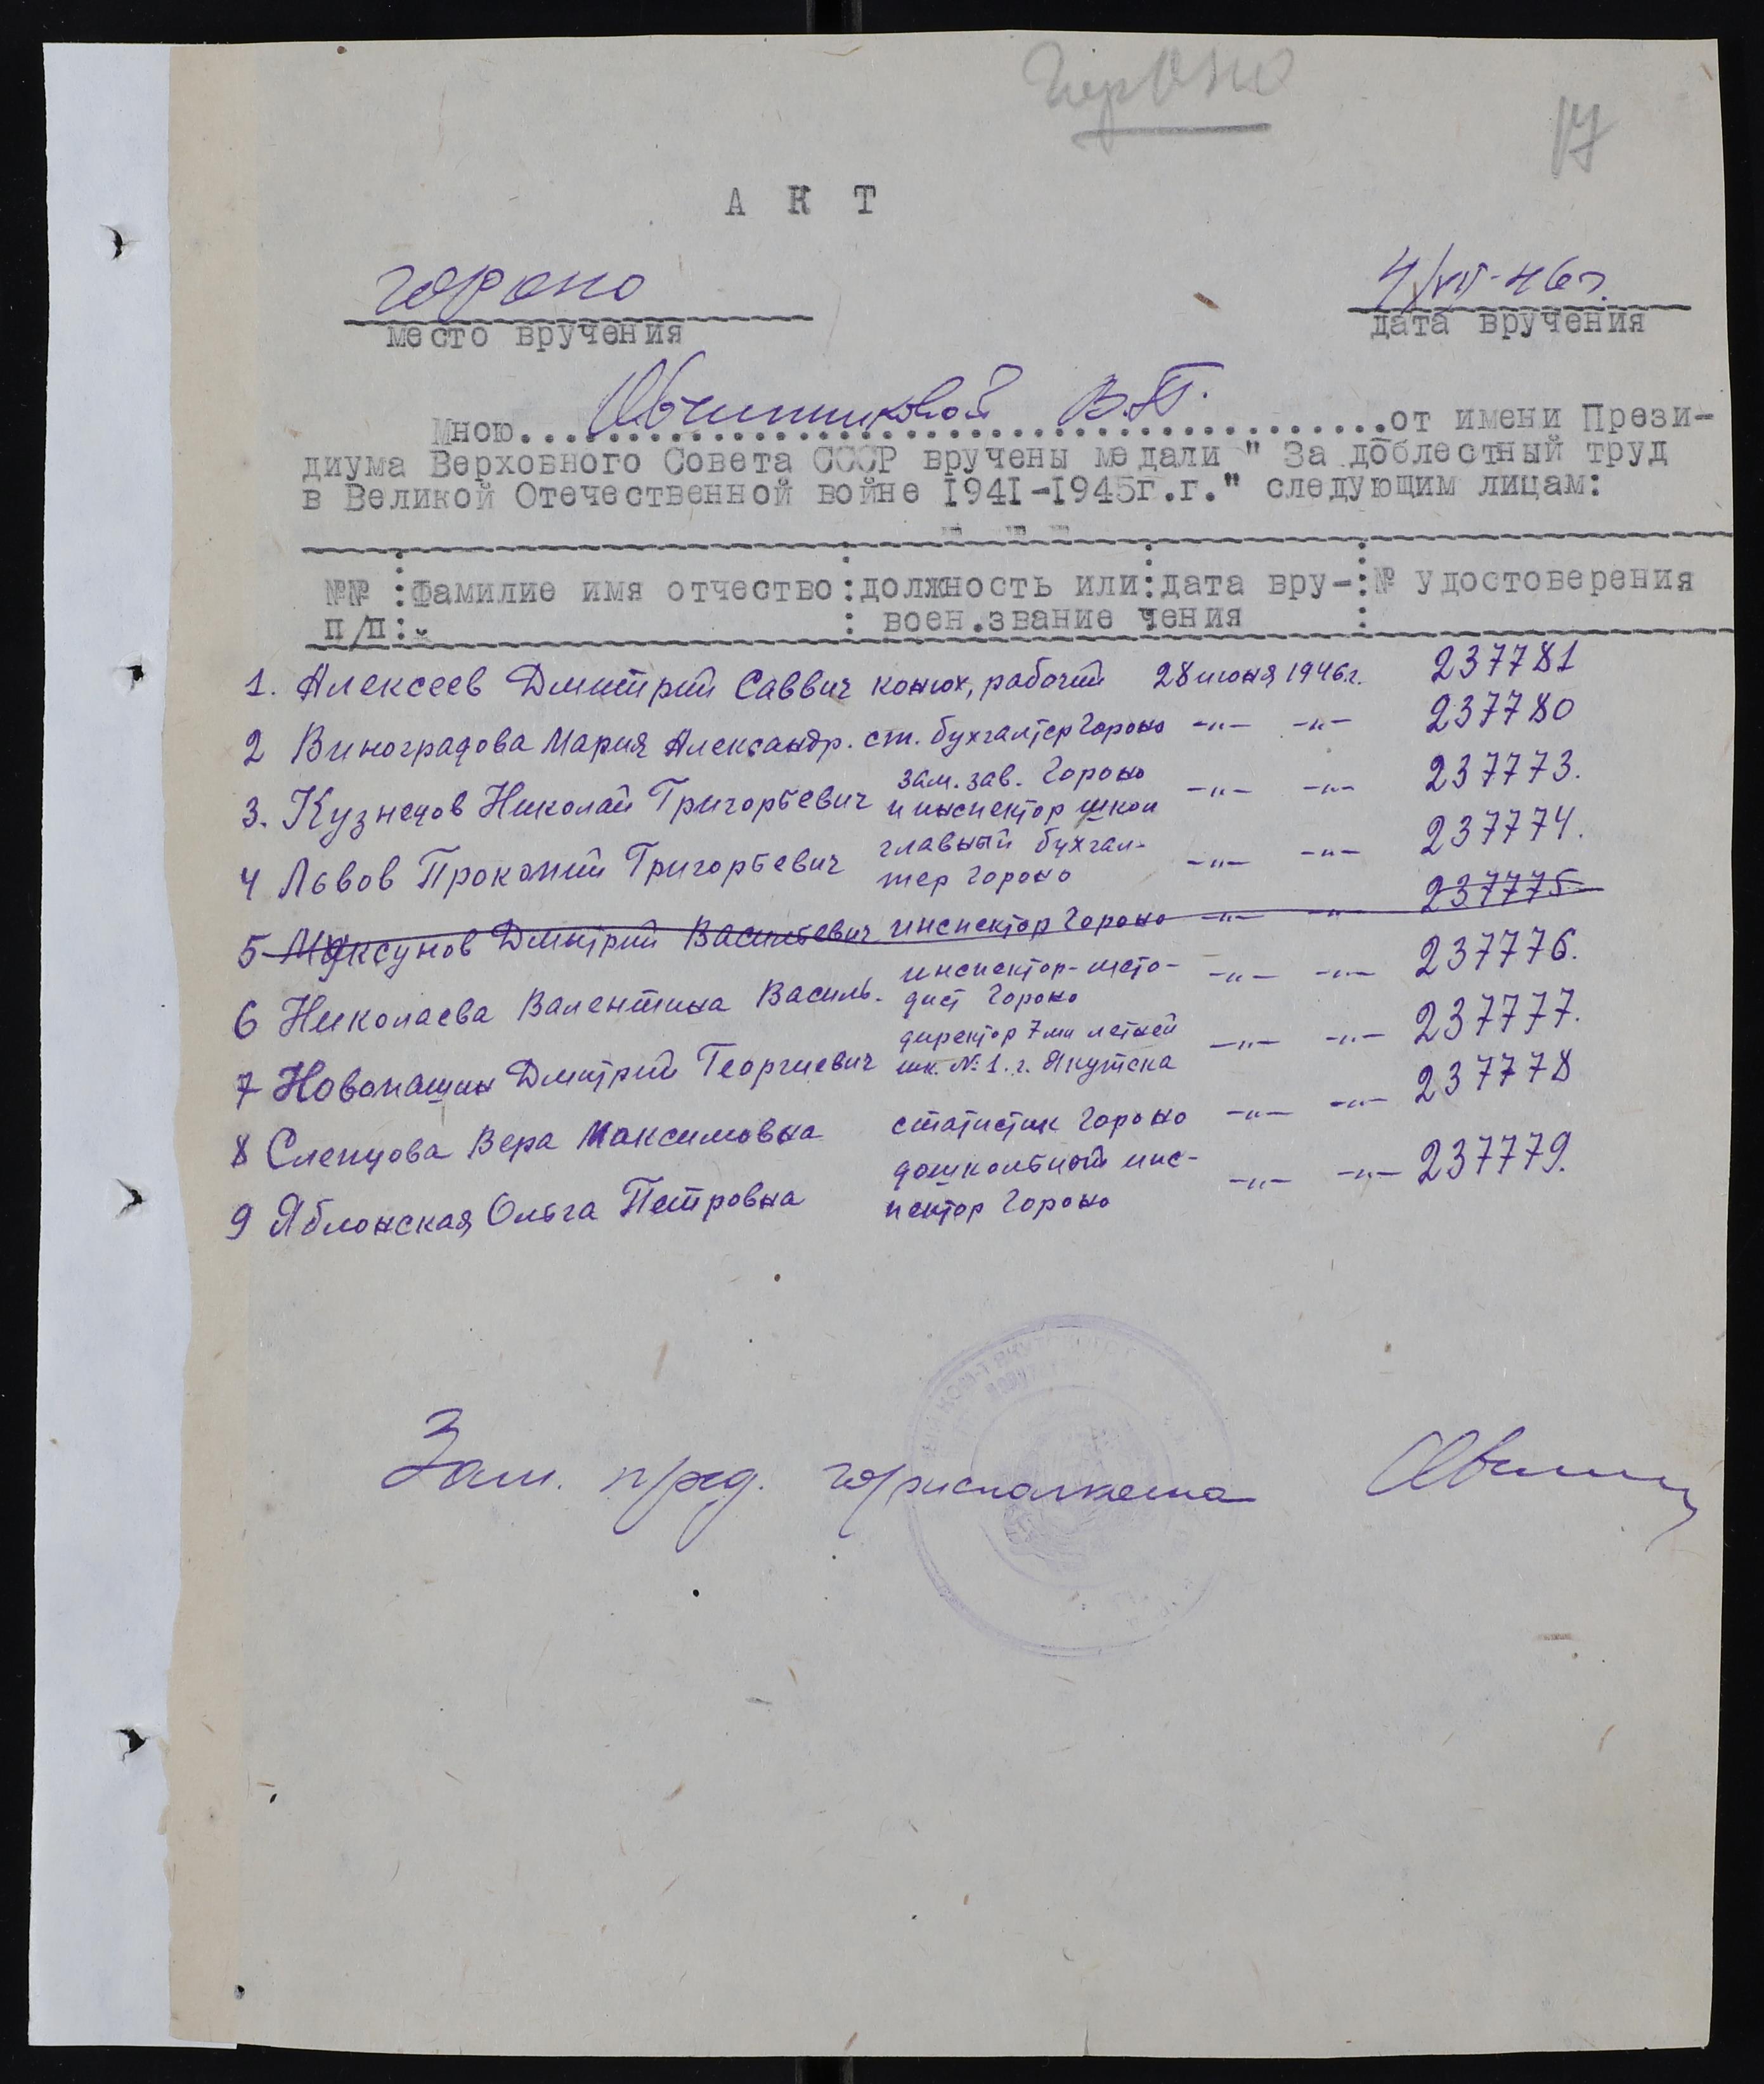 ГорОНО
17
А К Т
гороно
4/VII-46г.
место вручения
дата вручения
Мною....Овчинниковой В.П.....от имени Прези-
диума Верховного Совета СССР вручены медали " За доблестный труд
в Великой Отечественной войне 1941-1945г.г." следующим лицам:
№№ :Фамилие имя отчество:должность или:дата вру-:№ удостоверения
п/п: : воен.звание чения :
1. Алексеев Дмитрий Саввич конюх, рабочий 28 июня 1946г. 237781
2 Виноградова Мария Александр. ст. бухгалтер Гороно -"- -"- 237780
3. Кузнецов Николай Григорьевич зам. зав. Гороно -"- -"- 237773.
и инспектор школ
4 Львов Прокопий Григорьевич главный бухгал- -"- -"- 237774.
тер Гороно
5 Муксунов Дмитрий Васильевич инспектор Гороно -"- -"- 237775
6 Николаева Валентина Василь. инспектор-мето- -"- -"- 237776.
дист Гороно
7 Новопашин Дмитрий Георгиевич директор 7ми летней -"- -"- 237777.
шк. №1. г. Якутска
8 Слепцова Вера Максимовна статистик Гороно -"- -"- 237778
9 Яблонская Ольга Петровна дошкольный инс- -"- -"- 237779.
пектор Гороно
Зам. пред. горисполкома